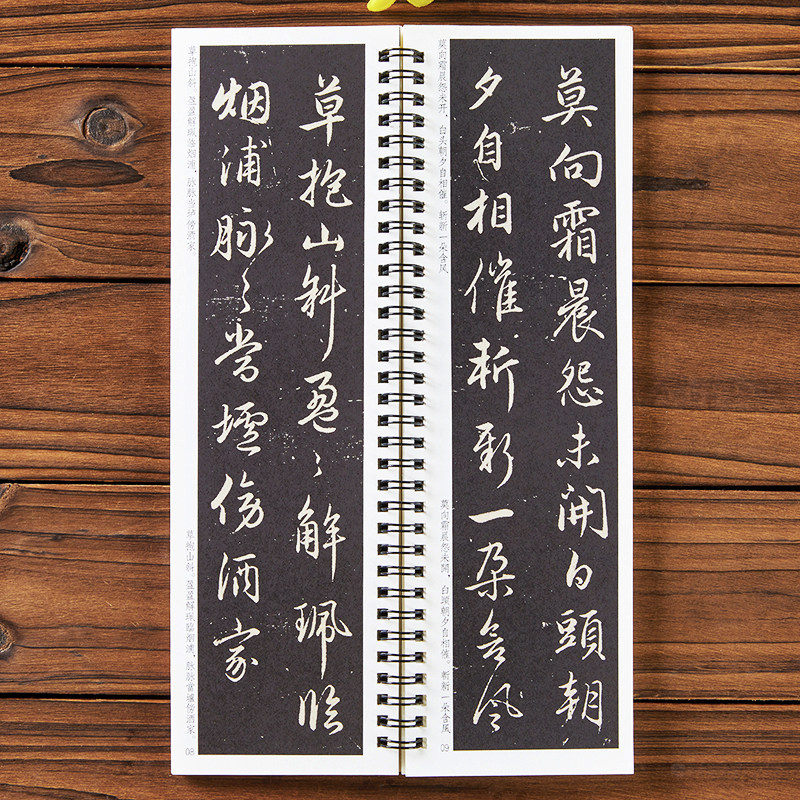 草抱山斜盈盈解珮臨
烟浦脉脉當壚傍酒家
草抱山斜。盈盈解珮临烟浦,脉脉当垆傍酒家
草抱山斜。盈盈解珮臨烟浦,脉脉當壚傍酒家。
08
莫向霜晨怨未開白頭朝
夕自相催斬新一朵含風
莫向霜晨怨未开,白头朝夕自相催。斩新一朵含风
莫向霜晨怨未開,白頭朝夕自相催。斬新一朵含風
09